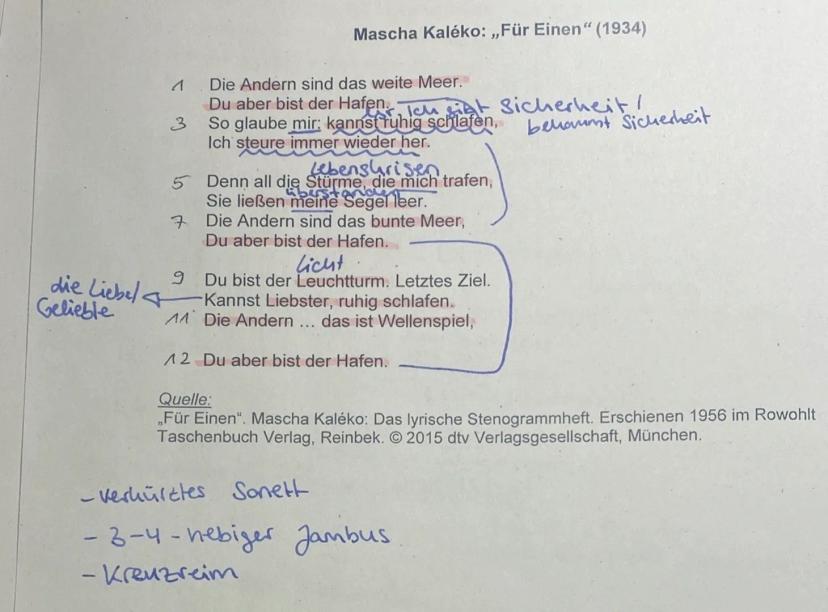 Mascha Kaléko: „Für Einen“ (1934)
1 Die Andern sind das weite Meer.
Du aber bist der Hafen.
Ich gibt Sicherheit /
bekommt Sicherheit
3 So glaube mir: kannst ruhig schlafen,
Ich steure immer wieder her.
Lebenskrisen
5 Denn all die Stürme, die mich trafen,
überstanden
Sie ließen meine Segel leer.
7 Die Andern sind das bunte Meer,
Du aber bist der Hafen.
Licht
9 Du bist der Leuchtturm. Letztes Ziel.
die Liebe/
Geliebte
Kannst Liebster, ruhig schlafen.
11 Die Andern ... das ist Wellenspiel,
12 Du aber bist der Hafen.
Quelle:
„Für Einen“. Mascha Kaléko: Das lyrische Stenogrammheft. Erschienen 1956 im Rowohlt
Taschenbuch Verlag, Reinbek. © 2015 dtv Verlagsgesellschaft, München.
- verkürztes Sonett
- 3-4-hebiger Jambus
- Kreuzreim